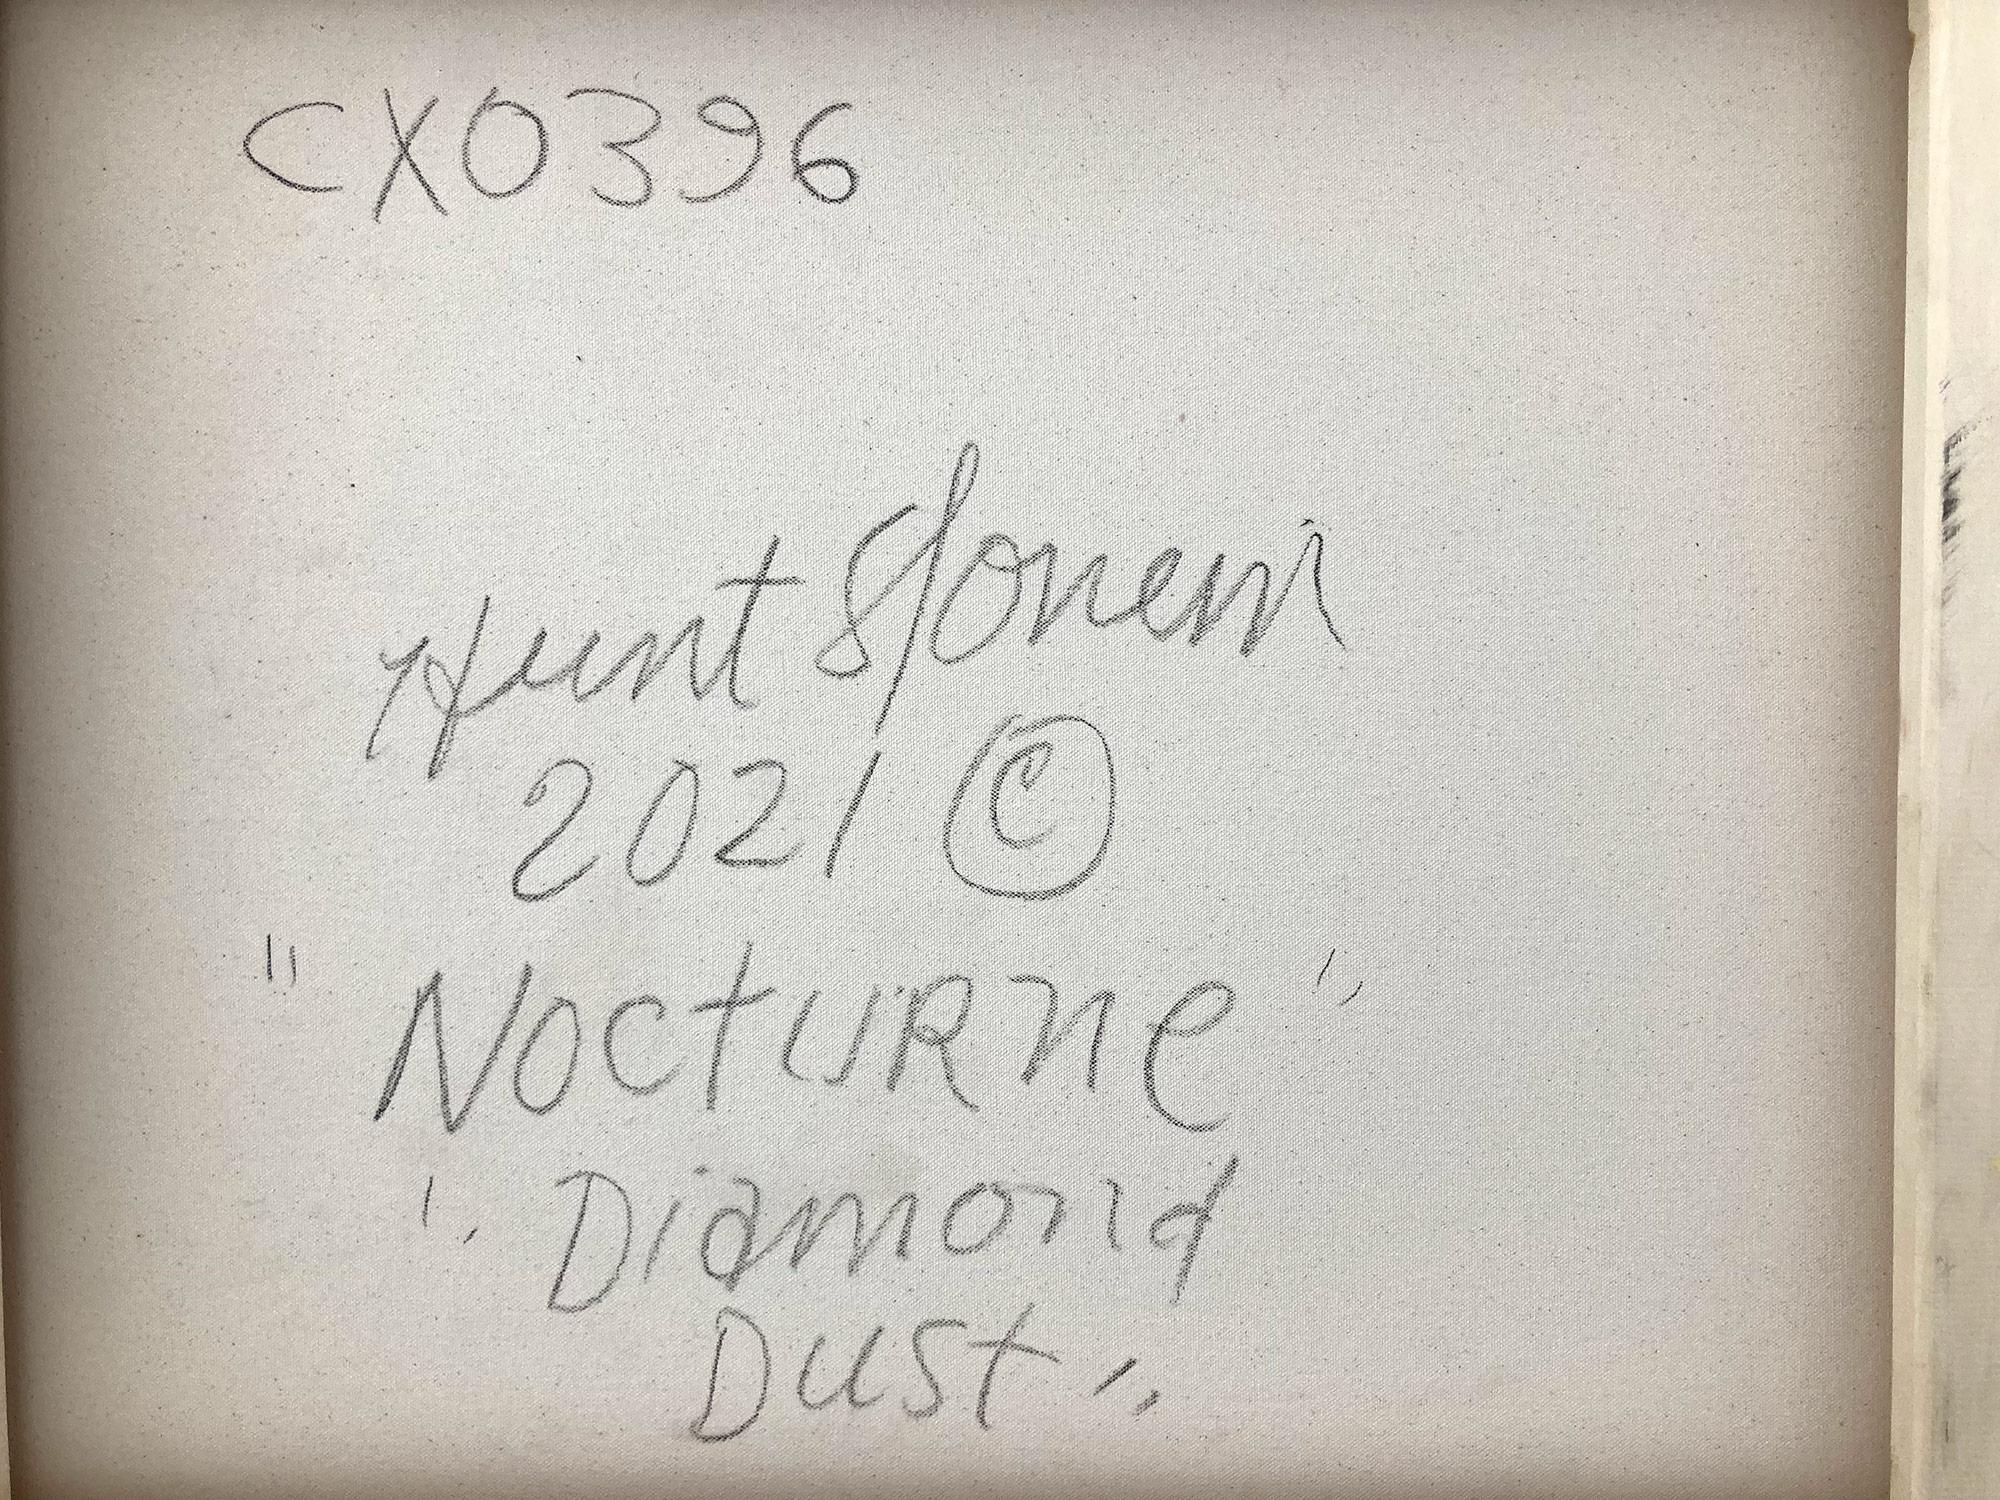 CX0396
Hunt Slonem
2021 ©
"Nocturne"
"Diamond
Dust"